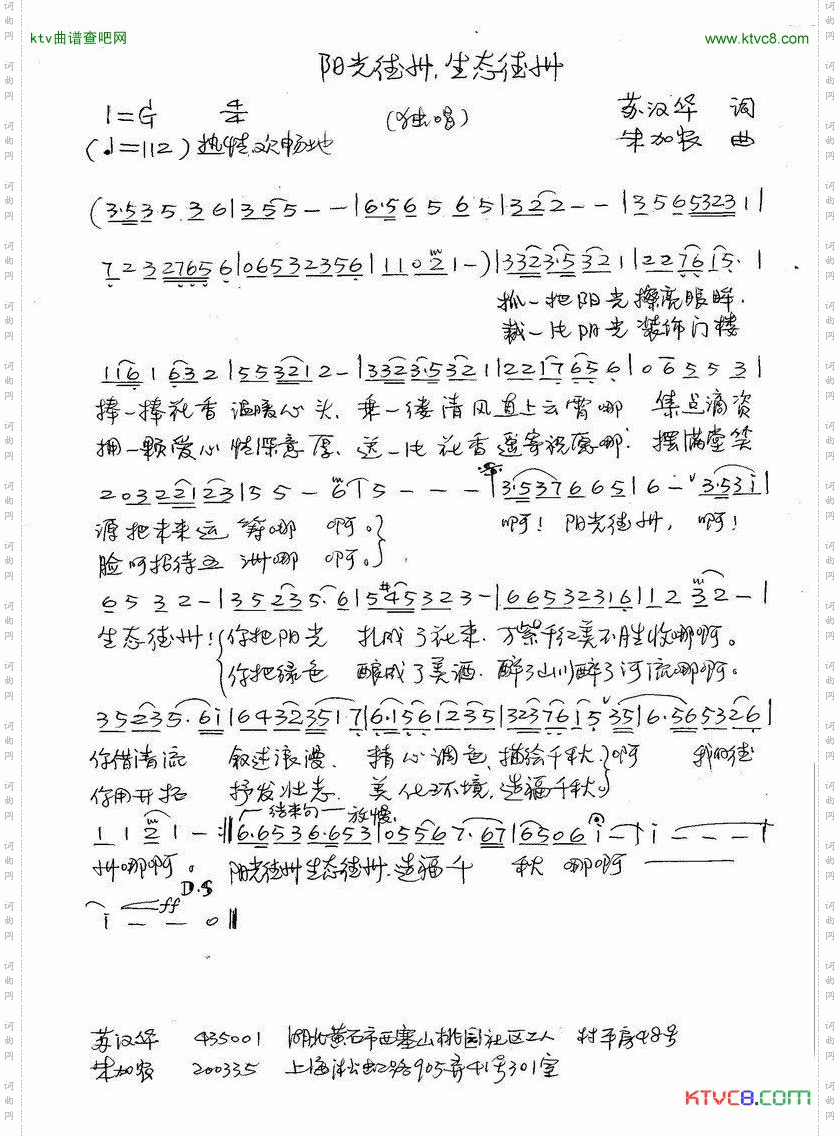 ktv曲谱查吧网 www.ktvc8.com
阳光德州,生态德州
1=G 4/4 (独唱) 苏汉华 词
(♩=112) 热情、欢畅地 朱加农 曲
(3·535 36|355--|6·565 65|322--|3565 3231|
723 27656|06532356|110 2 1-)|3323·5321|2276 15·|
抓一把阳光擦亮眼眸,
裁一片阳光装饰门楼
116 1 632|553212-|3323·5321|2217656|06553|
捧一捧花香温暖心头,乘一缕清风直上云霄哪 集点滴资
拥一颗爱心情深意厚、送一片花香遥寄祝愿哪: 摆满堂笑
203221 23|55-6|5---|3·5376 65|6i-3·53i|
源把未来运筹哪 啊。 啊! 阳光德州, 啊!
脸呵招待五洲哪 啊。
6532-|35235·6|5#45323-|66532316|1232-|
生态德州! 你把阳光 扎成了花束.万紫千红美不胜收哪啊。
你把绿色 酿成了美酒.醉了山川醉了河流哪啊。
35235·6i|643235 17|6·1561235|32376i5 35|6·565326|
你借清流 叙述浪漫、精心调色、描绘千秋、啊 我的德
你用开拓 抒发壮志.美化环境,造福千秋。
结束句 放慢
1121-:‖6·6536·653|05567·67|6506i-|i---|
州哪啊。 阳光德州生态德州.造福千 秋 哪啊
D.S ff
i--0‖
苏汉华 435001 湖北黄石市西塞山桃园社区工人村平房48号
朱加农 200335 上海淞虹路905弄41号301室
KTVC8.COM
词曲网